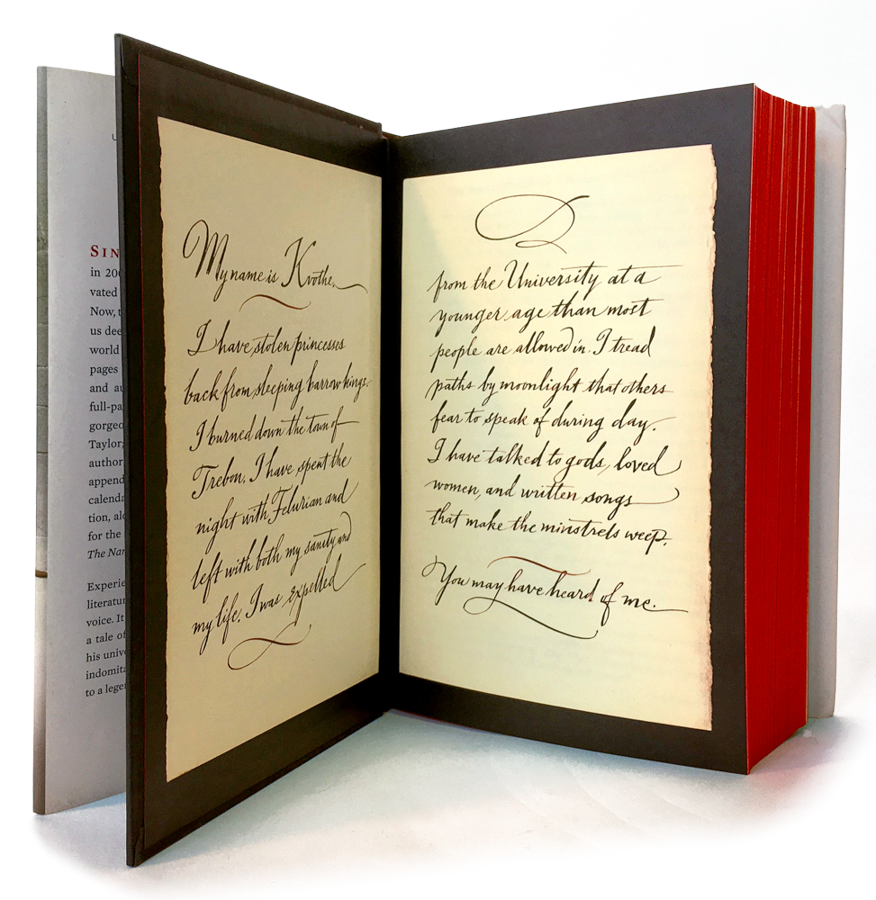 SIN
in 200
vated
Now, t
us dee
world
pages
and au
full-pa
gorgeo
Taylor;
author
append
calenda
tion, alo
for the
The Nar
Experie
literatur
voice. It
a tale of
his unive
indomita
to a lege
My name is Kvothe.
I have stolen princesses
back from sleeping barrow kings.
I burned down the town of
Trebon. I have spent the
night with Felurian and
left with both my sanity and
my life. I was expelled
from the University at a
younger age than most
people are allowed in. I tread
paths by moonlight that others
fear to speak of during day.
I have talked to gods, loved
women, and written songs
that make the minstrels weep.
You may have heard of me.